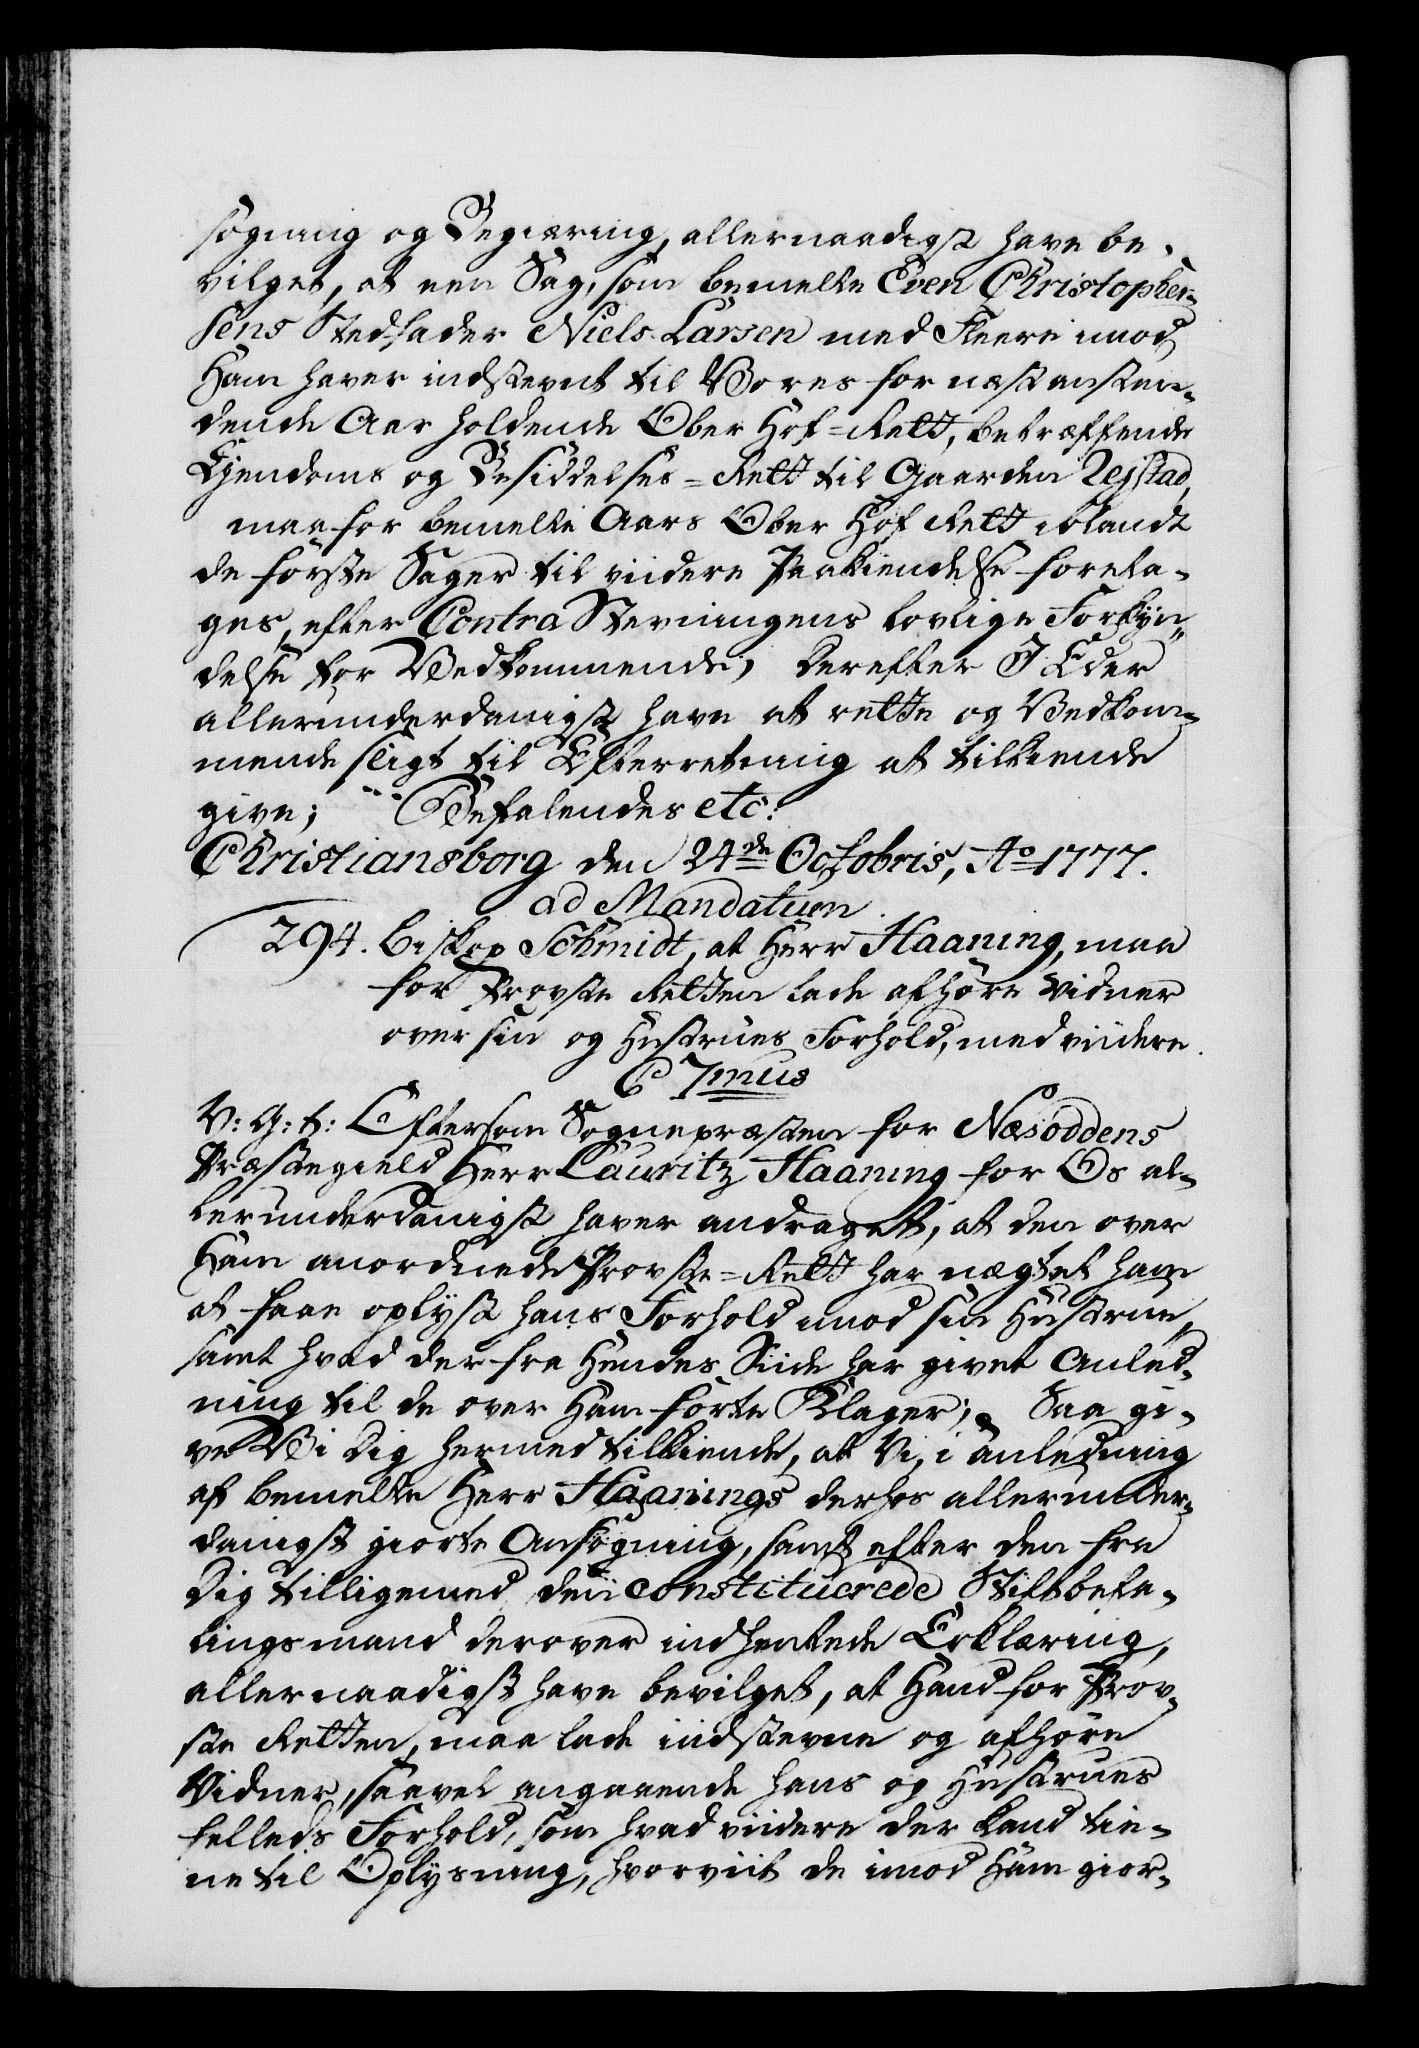 søgning og Begiæring, allernaadigst have be-
vilget, at een Sag, som bemelte Even Christopher-
sens Stedfader Niels Larsen med Fleere imod
Ham haver indstevnt til Vores for næstansten-
dende Aar holdende Ober Hof-Rett, betræffende
Ejendoms og Besiddelses-Rett til Gaarden Rejstad,
maa for bemelte Aars Ober Hof Rett iblandt
de første Sager til viidere Paakiendelse foreta-
ges, efter Contra Stevningens lovlige Forkyn-
delse for Vedkommende; Derefter I Eder
allerunderdanigst have at rette og Vedkom-
mende sligt til Efterretning at tilkiende
give; Befalendes etc:
Christiansborg den 24de Octobris, Ao 1777.
ad Mandatum.
294. Biskop Schmidt, at Herr Haaning, maa
for Provste Retten lade afhøre Vidner
over sin og Hustrues Forhold, med viidere.
C 7mus
V: G: t: Eftersom Sognepræsten for Næsoddens
Præstegield Herr Lauritz Haaning for Os al-
lerunderdanigst haver andraget, at den over
Ham anordnede Provste-Rett har nægtet ham
at faae oplyst hans Forhold imod sin Hustrue,
samt hvad der fra Hendes Siide har givet Anled-
ning til de over Hamførte Klager; Saa gi-
ve Vi Dig hermed tilkiende, at Vi, i anledning
af bemelte Herr Haanings derhos allerunder-
danigst giorte Ansøgning, samt efter den fra
Dig tilligemed den constituerede Stiftbefa-
lingsmand derover indhentede Erklæring,
allernaadigst have bevilget, at Hand for Prov-
ste Retten, maa lade indstevne og afhøre
Vidner, saavel angaaende hans og Hustrues
felleds Forhold, som hvad viidere der kand tie-
ne til Oplysning, hvorviit de imod Ham gior-